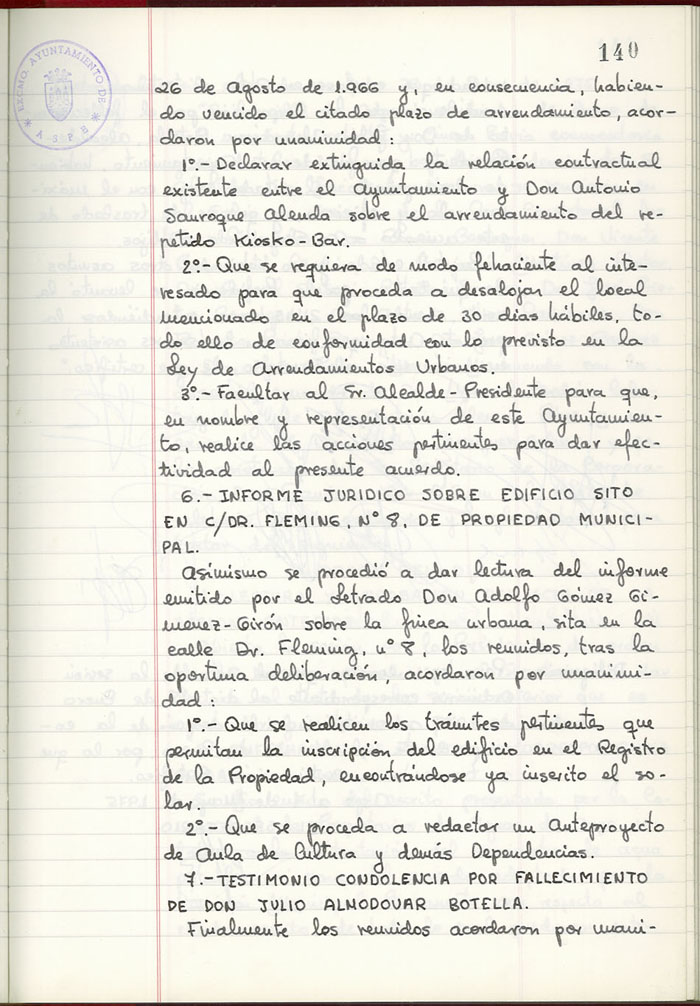 140
EXCMO. AYUNTAMIENTO DE
* ASPE *
26 de Agosto de 1.966 y, en consecuencia, habien-
do vencido el citado plazo de arrendamiento, acor-
daron por unanimidad:
1º.- Declarar extinguida la relación contractual
existente entre el Ayuntamiento y Don Antonio
Sauroque Alenda sobre el arrendamiento del re-
petido Kiosko-Bar.
2º.- Que se requiera de modo fehaciente al inte-
resado para que proceda a desalojar el local
mencionado en el plazo de 30 dias hábiles, to-
do ello de conformidad con lo previsto en la
Ley de Arrendamientos Urbanos.
3º.- Facultar al Sr. Alcalde-Presidente para que,
en nombre y representación de este Ayuntamien-
to, realice las acciones pertinentes para dar efec-
tividad al presente acuerdo.
6.- INFORME JURIDICO SOBRE EDIFICIO SITO
EN C/DR. FLEMING, Nº 8, DE PROPIEDAD MUNICI-
PAL.
Asimismo se procedió a dar lectura del informe
emitido por el Letrado Don Adolfo Gómez Gi-
menez-Girón sobre la finca urbana, sita en la
calle Dr. Fleming, nº 8, los reunidos, tras la
oportuna deliberación, acordaron por unanimi-
dad:
1º.- Que se realicen los trámites pertinentes que
permitan la inscripción del edificio en el Registro
de la Propiedad, encontrándose ya inscrito el so-
lar.
2º.- Que se proceda a redactar un Anteproyecto
de Aula de Cultura y demás Dependencias.
7.- TESTIMONIO CONDOLENCIA POR FALLECIMIENTO
DE DON JULIO ALMODOVAR BOTELLA.
Finalmente los reunidos acordaron por unani-